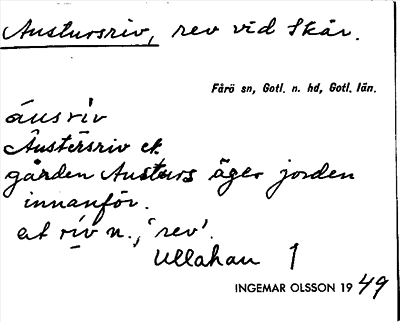 Austursriv, rev vid Skär.
Fårö sn, Gotl. n. hd, Gotl. län.
áusrìv
Austersriv ek.
gården Austurs äger jorden
innanför.
at rīv n., 'rev'.
Ullahau 1
INGEMAR OLSSON 1949